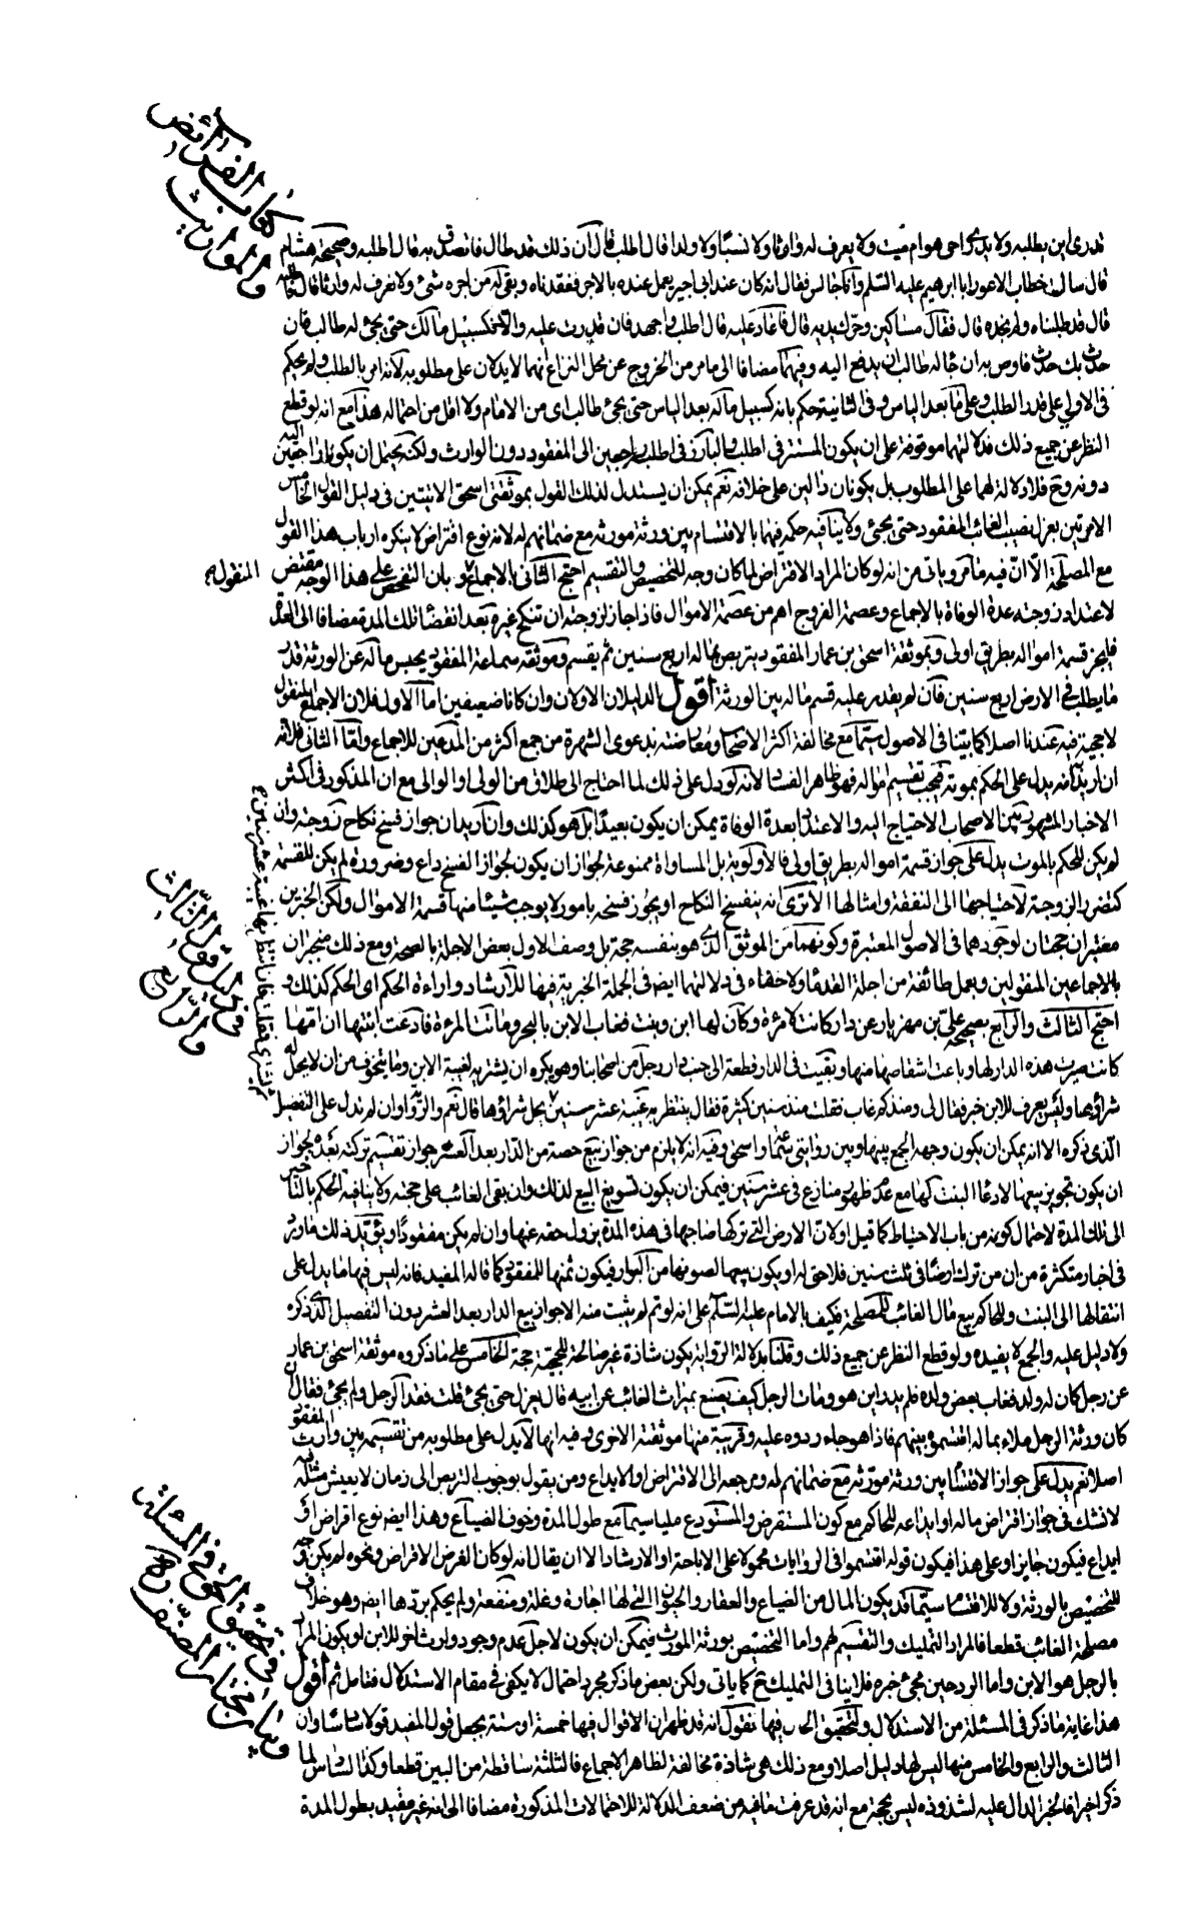 كتاب الفرائض
والمواريث
تدرى اين يطلبه ولا يدرى احى هو ام ميت ولا يعرف له وارثا ولا نسبا ولا ولدا قال اطلب قال ان ذلك قد طال فاتصدق به قال اطلبه وصحيحة هشام
قال سال خطاب الاعور ابا ابراهيم عليه السلم وانا جالس فقال انه كان عند ابى اجير يعمل عنده بالاجر ففقدناه وبقى له من اجره شئ ولا نعرف له وارثا قال فاطلبه
قال قد طلبناه ولم نجده قال فقال مساكين وحرك يديه قال فاعاد عليه قال اطلب واجهد فان قدرت عليه والا فكسبيل مالك حتى يجئ له طالب فان
حدث بك حدث فاوص به ان جاء له طالب ان يدفع اليه وفيهما مضافا الى ما مر من الخروج عن محل النزاع انهما لا يدلان على مطلوبه لانه امر بالطلب ولم يحكم
فى الاولى على قدر الطلب وعلى ما بعد الياس وفى الثانية حكم بانه كسبيل ماله بعد الياس حتى يجئ طالب اى من الامام ولا اقل من احتماله هذا مع انه لو قطع
النظر عن جميع ذلك فدلالتهما موقوفة على ان يكون المستتر فى اطلب والبارز فى اطلبه راجعين الى المفقود دون الوارث ولكنه يحتمل ان يكونا راجعين اليه
دونه وح فلا دلالة لهما على المطلوب بل يكونان دالين على خلافه نعم يمكن ان يستدل لذلك القول بموثقتى اسحق الاتيتين فى دليل القول الخامس
الامرتين بعزل نصيب الغائب المفقود حتى يجئ ولا ينافيه حكمه فيهما بالاقتسام بين ورثة مورثه مع ضمانهم له لانه نوع اقتراض لا ينكره ارباب هذا القول
مع المصلحة الا ان فيه ما مر وياتى من انه لو كان المراد الاقتراض لما كان وجه للتخصيص والتقسيم احتج الثانى بالاجماع وبان التفحص على هذا الوجه مقتض
المنقول
لاعتداد زوجته عدة الوفاة بالاجماع وعصمة الفروج اهم من عصمة الاموال فاذا جاز لزوجته ان تنكح غيره بعد انقضاء تلك المدة مضافا الى العدة
فليجز قسمة امواله بطريق اولى وبموثقة اسحق بن عمار المفقود يتربص بماله اربع سنين ثم يقسم وموثقة سماعة المفقود يحبس ماله عن الورثة قدر
ما يطلب فى الارض اربع سنين فان لم يقدر عليه قسم ماله بين الورثة اقول الدليلان الاولان وان كانا ضعيفين اما الاول فلان الاجماع المنقول
لا حجية فيه عندنا اصلا كما بينا فى الاصول سيما مع مخالفة اكثر الاصحاب ومعارضته بدعوى الشهرة من جمع اكثر من المدعين للاجماع واما الثانى فلانه
ان اريد انه يدل على الحكم بموته فيجب تقسيم امواله فهو ظاهر الفساد لانه لو دل على ذلك لما احتاج الى طلاق من الولى او الوالى مع ان المذكور فى اكثر
الاخبار المشهور بين الاصحاب الاحتياج اليه والاعتداد بعدة الوفاة يمكن ان يكون تعبدا بل هو كذلك وان اريد ان جواز فسخ نكاح زوجته وان
لم يكن للحكم بالموت يدل على جواز قسمة امواله بطريق اولى فالاولوية بل المساواة ممنوعة لجواز ان يكون لجواز الفسخ داع وضرورة لم يكن للقسمة
كتضرر الزوجة لاحتياجها الى النفقة وامثالها الا ترى انه ينفسخ النكاح او يجوز فسخه بامور لا يوجب شيئا منها قسمة الاموال ولكن الخبرين
معتبران حجتان لوجودهما فى الاصول المعتبرة وكونهما من الموثق الذى هو بنفسه حجة بل وصف الاول بعض الاجلة بالصحة ومع ذلك منجبران
بالاجماعين المنقولين وبعمل طائفة من اجلة القدماء ولا خفاء فى دلالتهما ايض فى الجملة الخبرية فيها للارشاد واراءة الحكم اى الحكم كذلك و
احتج الثالث والرابع بصحيحة على بن مهزيار عن دار كانت لامرءة وكان لها ابن وبنت فغاب الابن بالبحر وماتت المرءة فادعت ابنتها ان امها
فى دليل قول الثالث
والرابع
كانت صيرت هذه الدار لها وباعت اشقاصها منها وبقيت فى الدار قطعة الى جنب دار رجل من اصحابنا وهو يكره ان يشتريه لغيبة الابن وما يتخوف من ان لا يحل له
شراؤها وليس يعرف للابن خبر فقال لى ومنذ كم غاب فقلت منذ سنين كثيرة فقال ينتظر به غيبة عشر سنين يحل شراؤها قال نعم والرواية وان لم تدل على التفصيل
يشترى فقلت فاذا انتظر بها غيبة عشر سنين
الذى ذكره الا انه يمكن ان يكون وجهه الجمع بينها وبين روايتى سماعة واسحق وفيه انه لا يلزم من جواز بيع حصة من الدار بعد العشر جواز تقسيم تركته بعده لجواز
ان يكون تجويز بيعها لادعاء البنت كلها مع عدم ظهور منازع فى عشر سنين فيمكن ان يكون تسويغ البيع لذلك وان بقى الغائب على حجته ولا ينافيه الحكم بالتاخير
الى تلك المدة لاحتمال كونه من باب الاحتياط كما قيل او لان الارض التى تركها صاحبها فى هذه المدة يزول حقه عنها وان لم يكن مفقودا ويؤيد ذلك ما ورد
فى اخبار متكثرة من ان من ترك ارضا فى ثلث سنين فلا حق له او يكون بيعها لصونها من البوار فيكون ثمنها للمفقود كما قاله المفيد فانه ليس فيها ما يدل على
انتقالها الى البنت وللحاكم بيع مال الغائب للمصلحة فكيف بالامام عليه السلم على انه لو تم لم يثبت منه الا جواز بيع الدار بعد العشر دون التفصيل الذى ذكره
ولا دليل عليه والجمع لا يفيده ولو قطع النظر عن جميع ذلك وقلنا بدلالة الرواية يكون شاذة غير صالحة للحجية حجة الخامس على ما ذكروه موثقة اسحق بن عمار
عن رجل كان له ولد فغاب بعض ولده فلم يدر اين هو ومات الرجل كيف يصنع بميراث الغائب عن ابيه قال يعزل حتى يجئ قلت فقد الرجل ولم يجئ فقال ان
كان ورثة الرجل ملاء بماله اقتسموه بينهم فاذا هو جاء ردوه عليه وقريبة منها موثقته الاخرى وفيه انها لا يدل على مطلوبه من تقسيمه بين وارث المفقود
اصلا نعم يدل على جواز الاقتسام بين ورثة مورثه مع ضمانهم له ومرجعه الى الاقتراض او الايداع ومن يقول بوجوب التربص الى زمان لا يعيش مثله فيه
لا نشك فى جواز اقتراض ماله او ايداعه للحاكم مع كون المستقرض والمستودع مليا سيما مع طول المدة وخوف الضياع وهذا ايض نوع اقراض او
ايداع فيكون جايزا وعلى هذا فيكون قوله اقتسموا فى الروايات محمولا على الاباحة او الارشاد الا ان يقال انه لو كان الغرض الاقراض ونحوه لم يكن وجه
للتخصيص بالورثة ولا للاقتسام سيما قد يكون المال من الضياع والعقار والحيوان التى لها اجارة وغلة ومنفعة ولم يحكم بردها ايض وهو خلاف
مصلحة الغائب قطعا فالمراد التمليك والتقسيم لهم واما التخصيص بورثة المورث فيمكن ان يكون لاجل عدم وجود وارث اخر للابن او يكون المراد
بالرجل هو الابن واما الرد حين مجئ خبره فلا ينافى التمليك ح كما ياتى ولكن بعض ما ذكر مجرد احتمال لا يكفى فى مقام الاستدلال فتامل ثم اقول
فى تحقيق الحق فى المسئلة
وبيان مختار المصنف ره
هذا غاية ما ذكر فى المسئلة من الاستدلال ولتحقيق الحال فيها نقول انه قد ظهر ان الاقوال فيها خمسة او ستة بجعل قول المفيد قولا سادسا وان
الثالث والرابع والخامس منها ليس لها دليل اصلا ومع ذلك هى شاذة مخالفة لظاهر الاجماع فالثلثة ساقطة من البين قطعا وكذا السادس لما
ذكر اخيرا فالخبر الدال عليه لشذوذه ليس بحجة مع انه قد عرفت ما فيه من ضعف الدلالة للاحتمالات المذكورة مضافا الى انه غير مفيد بطول المدة